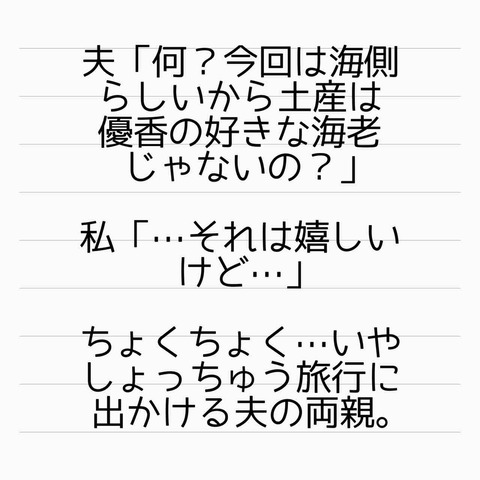 夫「何？今回は海側
らしいから土産は
優香の好きな海老
じゃないの？」
私「…それは嬉しい
けど…」
ちょくちょく…いや
しょっちゅう旅行に
出かける夫の両親。